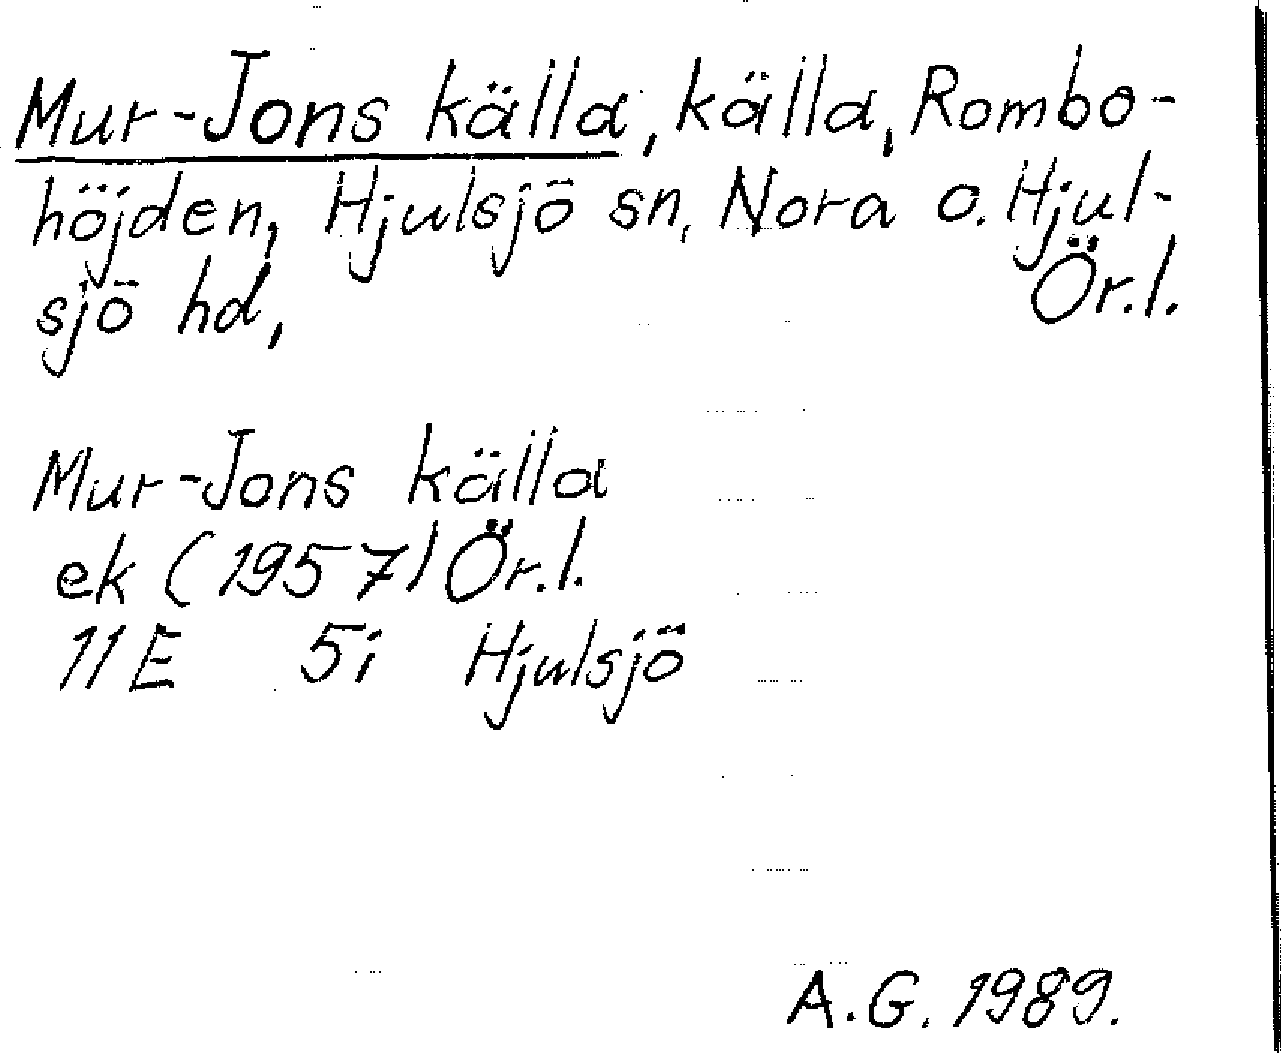 Mur-Jons källa, källa, Rombo-
höjden, Hjulsjö sn, Nora o. Hjul-
sjö hd, Ör.l.
Mur-Jons källa
ek (1957) Ör.l.
11E 5i Hjulsjö
A.G. 1989.